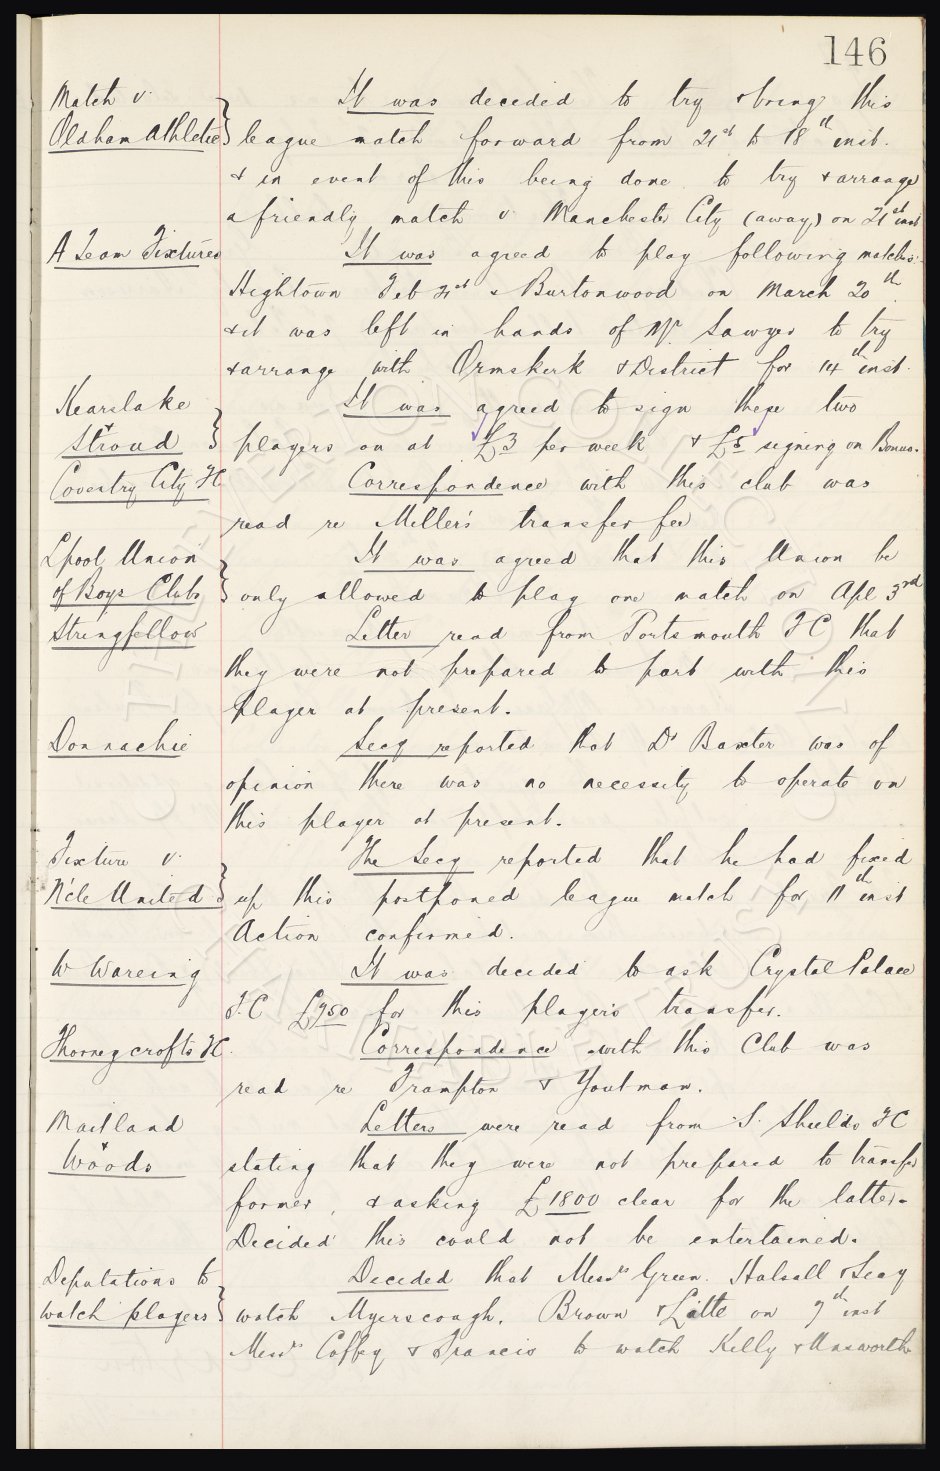 146
Match v.
It was decided to try & bring this
Oldham Athletic league match forward from 21st to 18th inst.
& in event of this being done to try & arrange
a friendly match v. Manchester City (away) on 21st inst
A Team Fixtures It was agreed to play following matches:
Hightown Feb 21st & Burtonwood on March 20th
& it was left in hands of Mr. Sawyer to try
& arrange with Ormskirk & District for 14th inst.
Kearslake It was agreed to sign these two
& Stroud players on at £3 per week & £5 signing on Bonus.
Coventry City FC Correspondence with this club was
read re Miller's transfer fee
Lpool Union It was agreed that this Union be
of Boys Clubs only allowed to play one match on Apl 3rd
Stringfellow Letter read from Portsmouth FC that
they were not prepared to part with this
player at present.
Donnachie Secy reported that Dr Baxter was of
opinion there was no necessity to operate on
this player at present.
Fixture v. The Secy reported that he had fixed
N'cle United up this postponed league match for 11th inst
Action confirmed.
W Wareing It was decided to ask Crystal Palace
F.C £750 for this players transfer.
Thorneycrofts FC. Correspondence with this Club was
read re Frampton & Youtman.
Maitland Letters were read from S. Shields FC
& Woods stating that they were not prepared to transfer
former, & asking £1800 clear for the latter.
Decided this could not be entertained.
Deputations to Decided that Messrs Green. Halsall & Secy
watch players watch Myerscough, Brown & Little on 7th inst
Messrs Coffey & Francis to watch Kelly & Unsworth